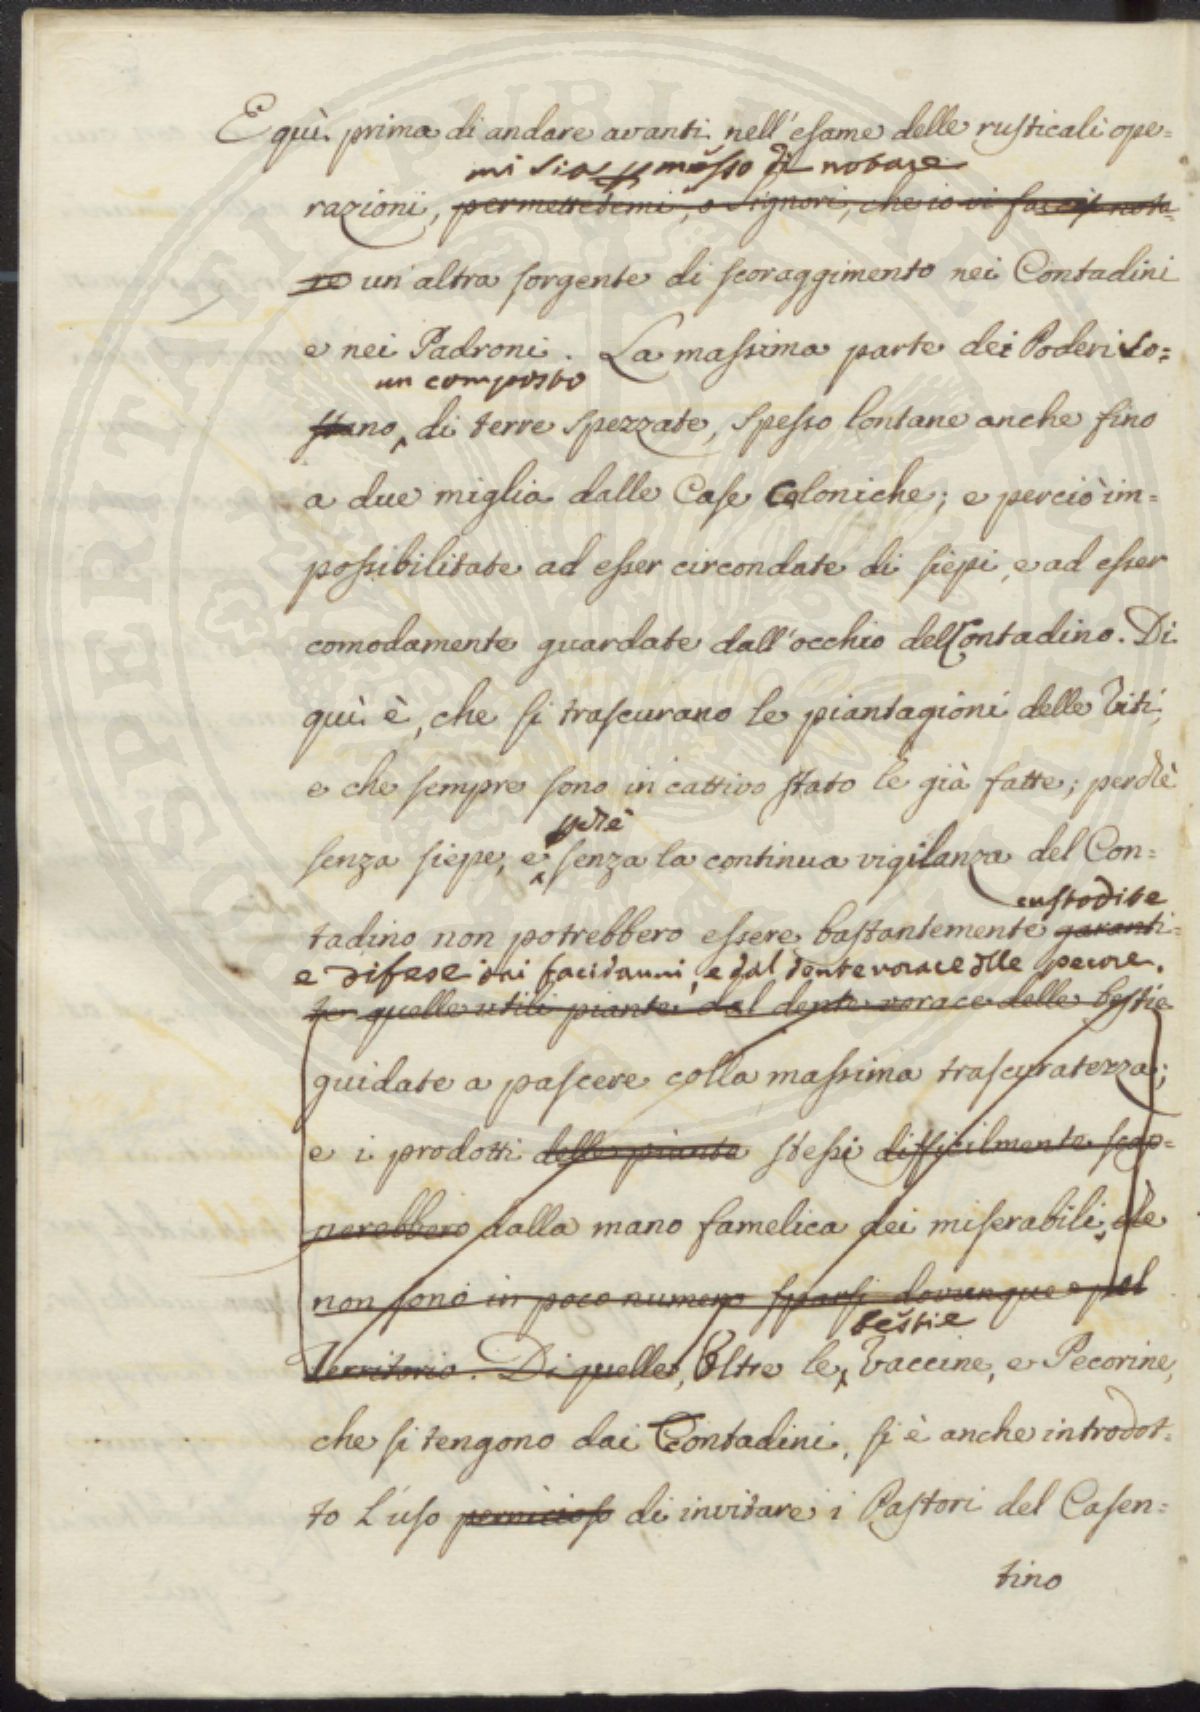 E quì prima di andare avanti nell'esame delle rusticali ope=
mi sia permesso di notare
razioni, permettetemi, o Signori, che io vi faccia nota=
re un'altra sorgente di scoraggimento nei Contadini
e nei Padroni. La massima parte dei Poderi so=
un composto
stano di terre spezzate, spesso lontane anche fino
a due miglia dalle Case Coloniche; e perciò im=
possibilitate ad esser circondate di siepi, e ad esser
comodamente guardate dall'occhio del Contadino. Di
quì è, che si trascurano le piantagioni delle Viti,
e che sempre sono in cattivo stato le già fatte; perchè
perchè
senza siepe, e senza la continua vigilanza del Con=
custodite
tadino non potrebbero essere bastantemente garanti=
e difese dai facidanni, e dal dente vorace delle pecore.
te quelle utili piante dal dente vorace delle bestie
guidate a pascere colla massima trascuratezza;
e i prodotti delle piante stessi difficilmente scap=
perebbero dalla mano famelica dei miserabili, che
non sono in poco numero sparsi dovunque pel
bestie
Territorio. Di quelle, Oltre le Vaccine, e Pecorine,
che si tengono dai Contadini, si è anche introdot=
to l'uso pernicioso di invitare i Pastori del Casen=
tino